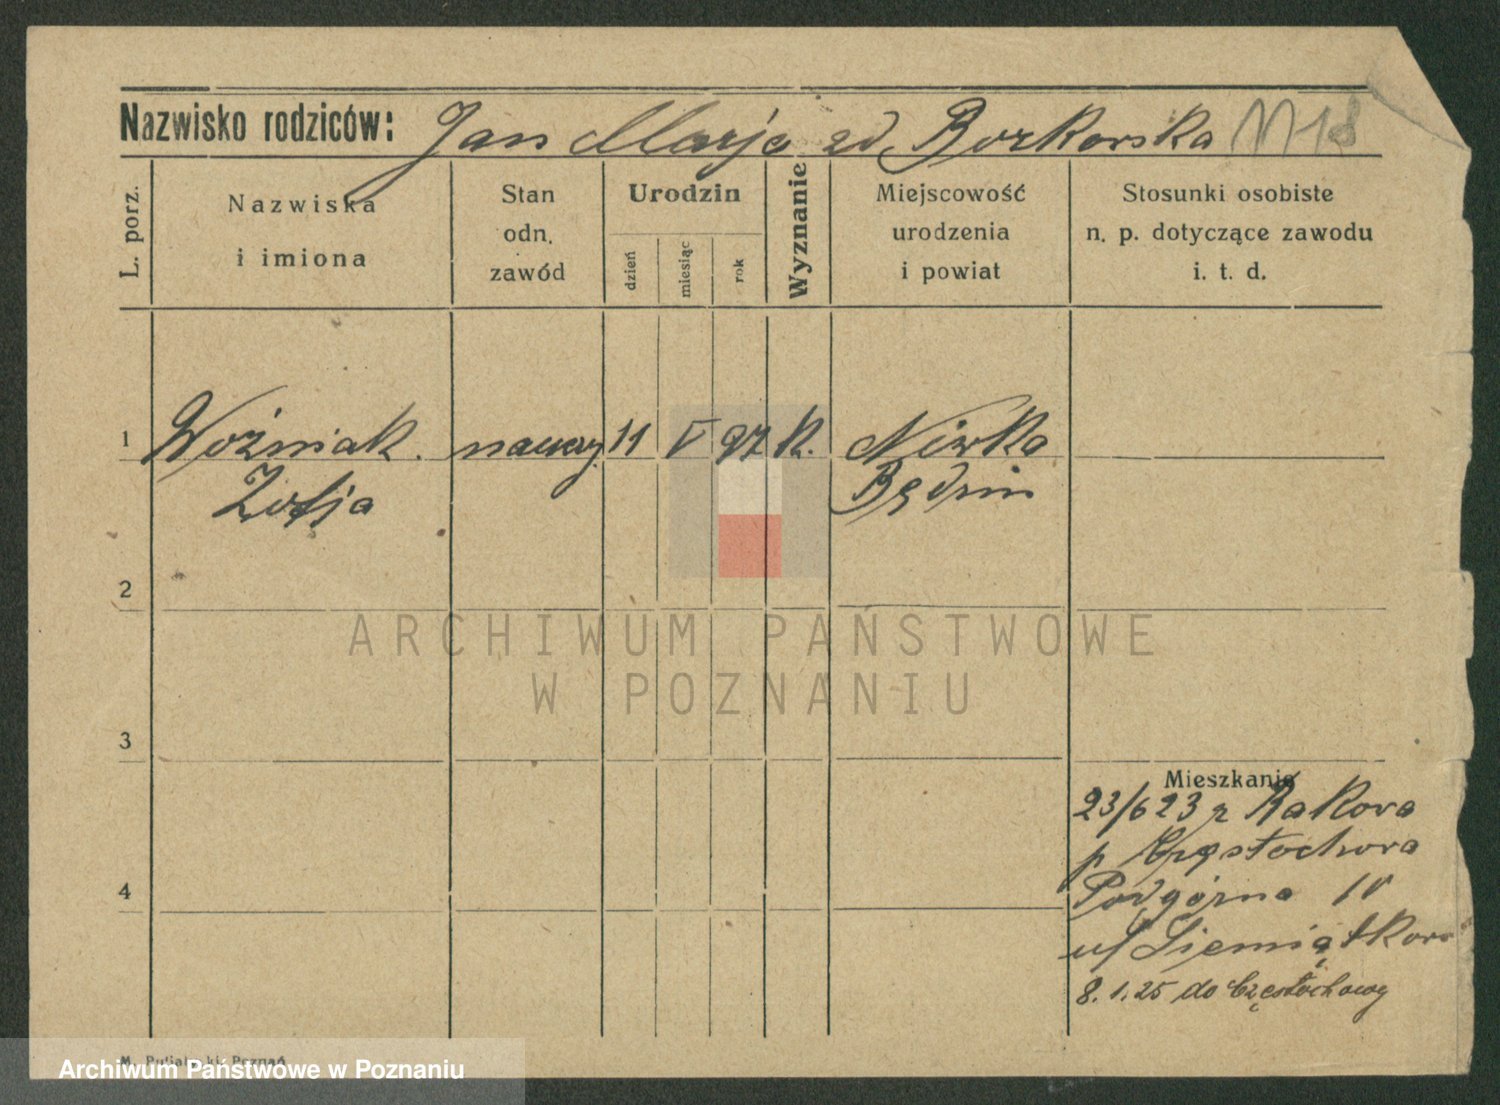 Nazwisko rodziców: Jan Marja zd Borkowska
L. porz.
Nazwiska
i imiona
Stan
odn.
zawód
Urodzin
dzień
miesiąc
rok
Wyznanie
Miejscowość
urodzenia
i powiat
Stosunki osobiste
n. p. dotyczące zawodu
i. t. d.
1 Woźniak. nauczy. 11 V 97 K. Niwka
Zofja Będzin
2
ARCHIWUM PAŃSTWOWE
W POZNANIU
3
Mieszkanie
23/6 23 z Rakowa
p Częstochowa
Podgórna
4
u/ Siemiątkow
8. 1. 25 do Częstochowy
Poznań
Archiwum Państwowe w Poznaniu